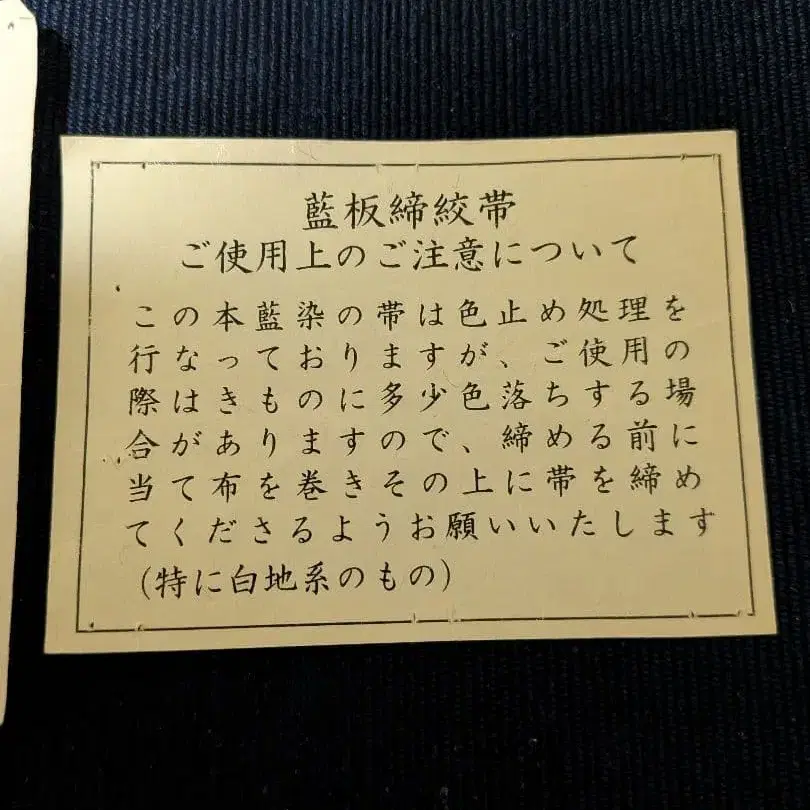 藍板締絞帯
ご使用上のご注意について
この本藍染の帯は色止め処理を
行なっておりますが、ご使用の
際はきものに多少色落ちする場
合がありますので、締める前に
当て布を巻きその上に帯を締め
てくださるようお願いいたします
(特に白地系のもの)